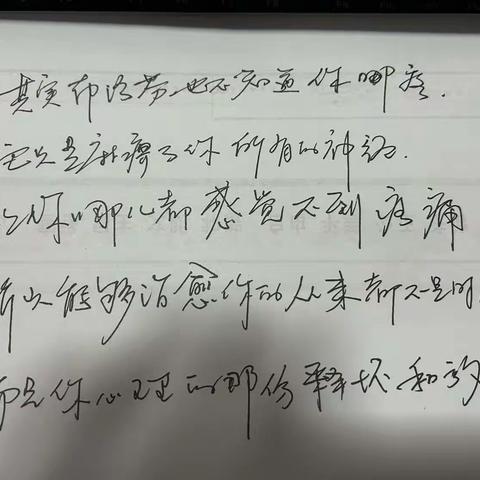 其实布洛芬也不知道你哪疼.
它只是麻痹了你所有的神经.
让你哪儿都感觉不到疼痛
所以能够治愈你的从来都不是时
而是你心里的那份释怀和